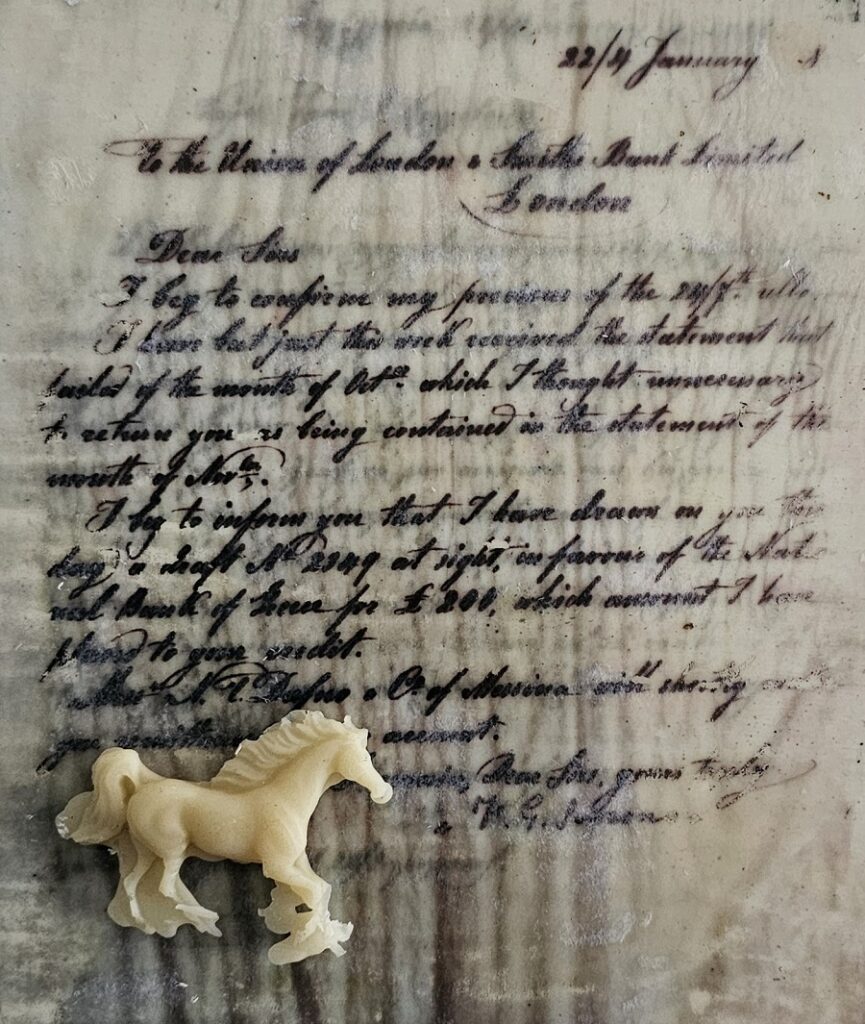 22/4 January
To the Union of London & Smiths Bank Limited
London
Dear Sirs
I beg to confirm my previous of the 24/7th ulto.
I have but just this week received the statement that
failed of the month of Octer which I thought unnecessary
to return you as being contained in the statement of the
month of Novber.
I beg to inform you that I have drawn on you this
day a draft No 2849 at sight, in favour of the Nat
nal Bank of Greece for £ 200, which amount I have
placed to your credit.
Messrs N. T. & Co. of Messina will shortly
you account.
remain, Dear Sirs, yours truly